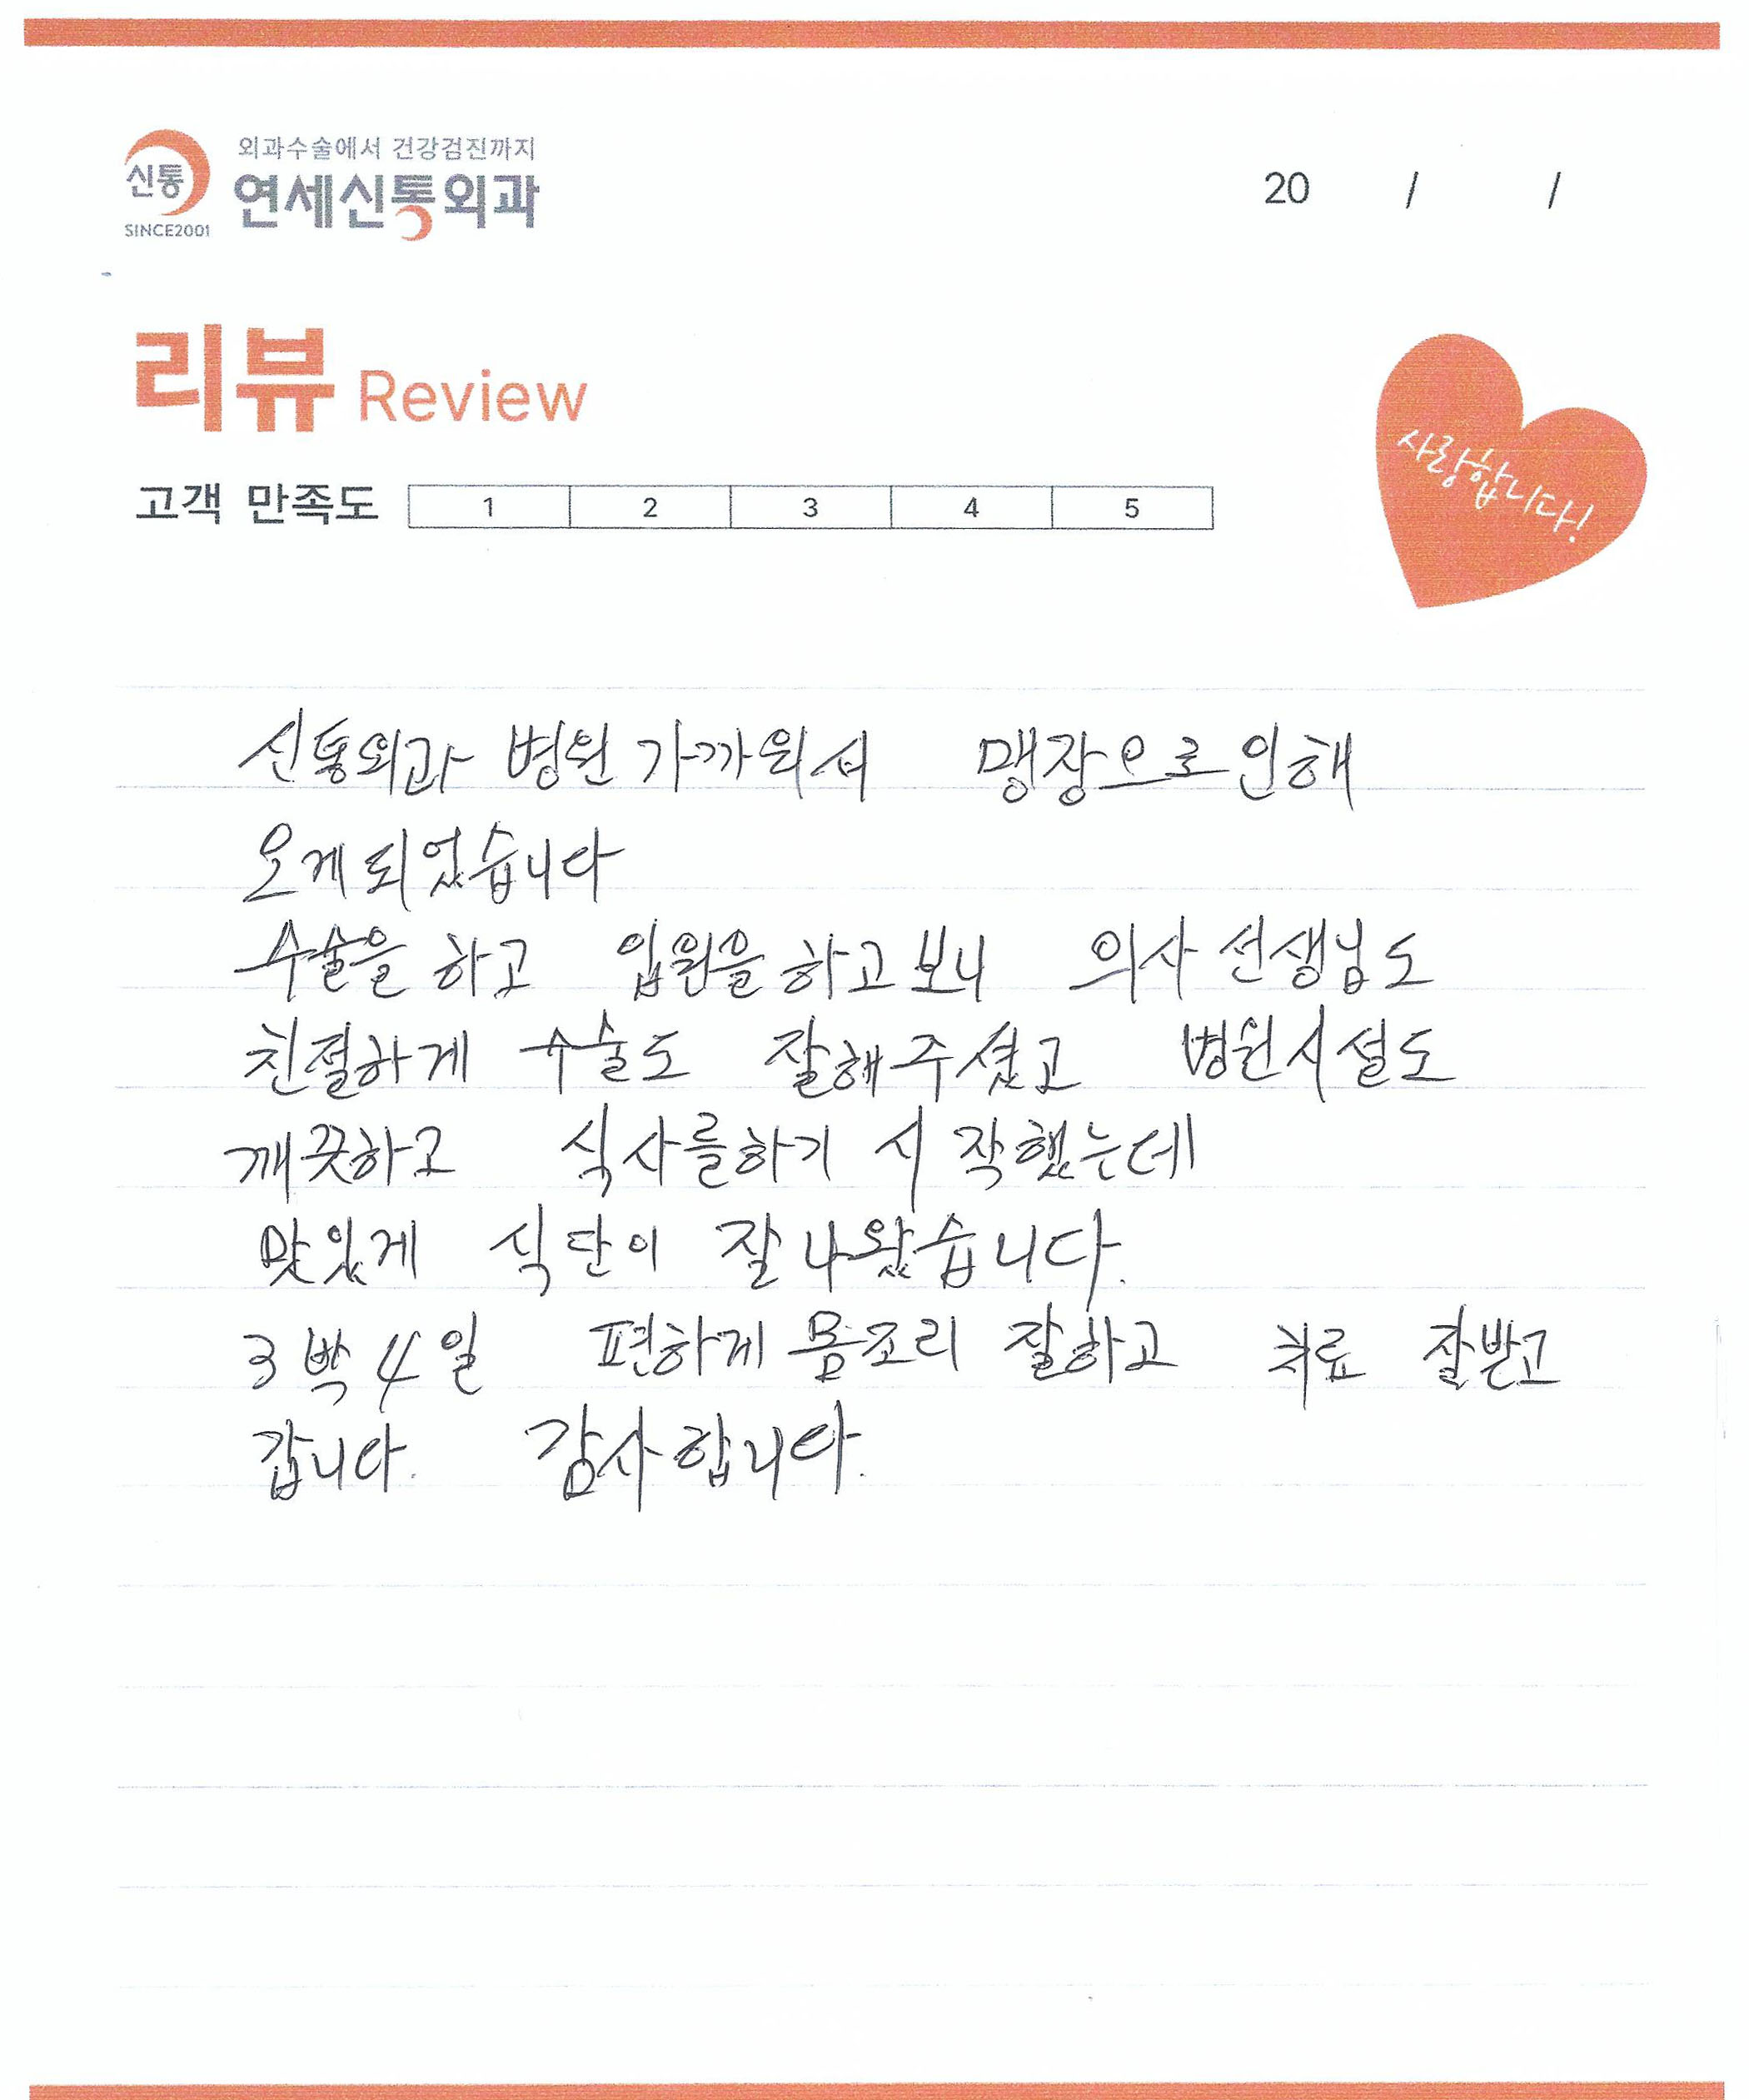 외과수술에서 건강검진까지
신통 연세신통외과
SINCE2001
20 / /
리뷰 Review
사랑합니다!
고객 만족도 1 2 3 4 5
신통외과 병원 가까워서 맹장으로 인해
오게 되었습니다
수술을 하고 입원을 하고 보니 의사 선생님도
친절하게 수술도 잘해주셨고 병원시설도
깨끗하고 식사를하기 시작했는데
맛있게 식단이 잘 나왔습니다.
3박 4일 편하게 몸조리 잘하고 치료 잘받고
갑니다. 감사합니다.